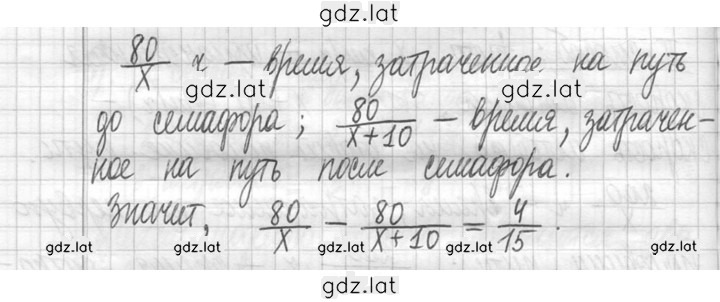 gdz.lat
80/x ч – время, затраченное на путь
gdz.lat gdz.lat
до семафора; 80/(x+10) – время, затрачен-
ное на путь после семафора.
Значит, 80/x – 80/(x+10) = 4/15.
gdz.lat gdz.lat gdz.lat gdz.lat gdz.lat
gdz.lat